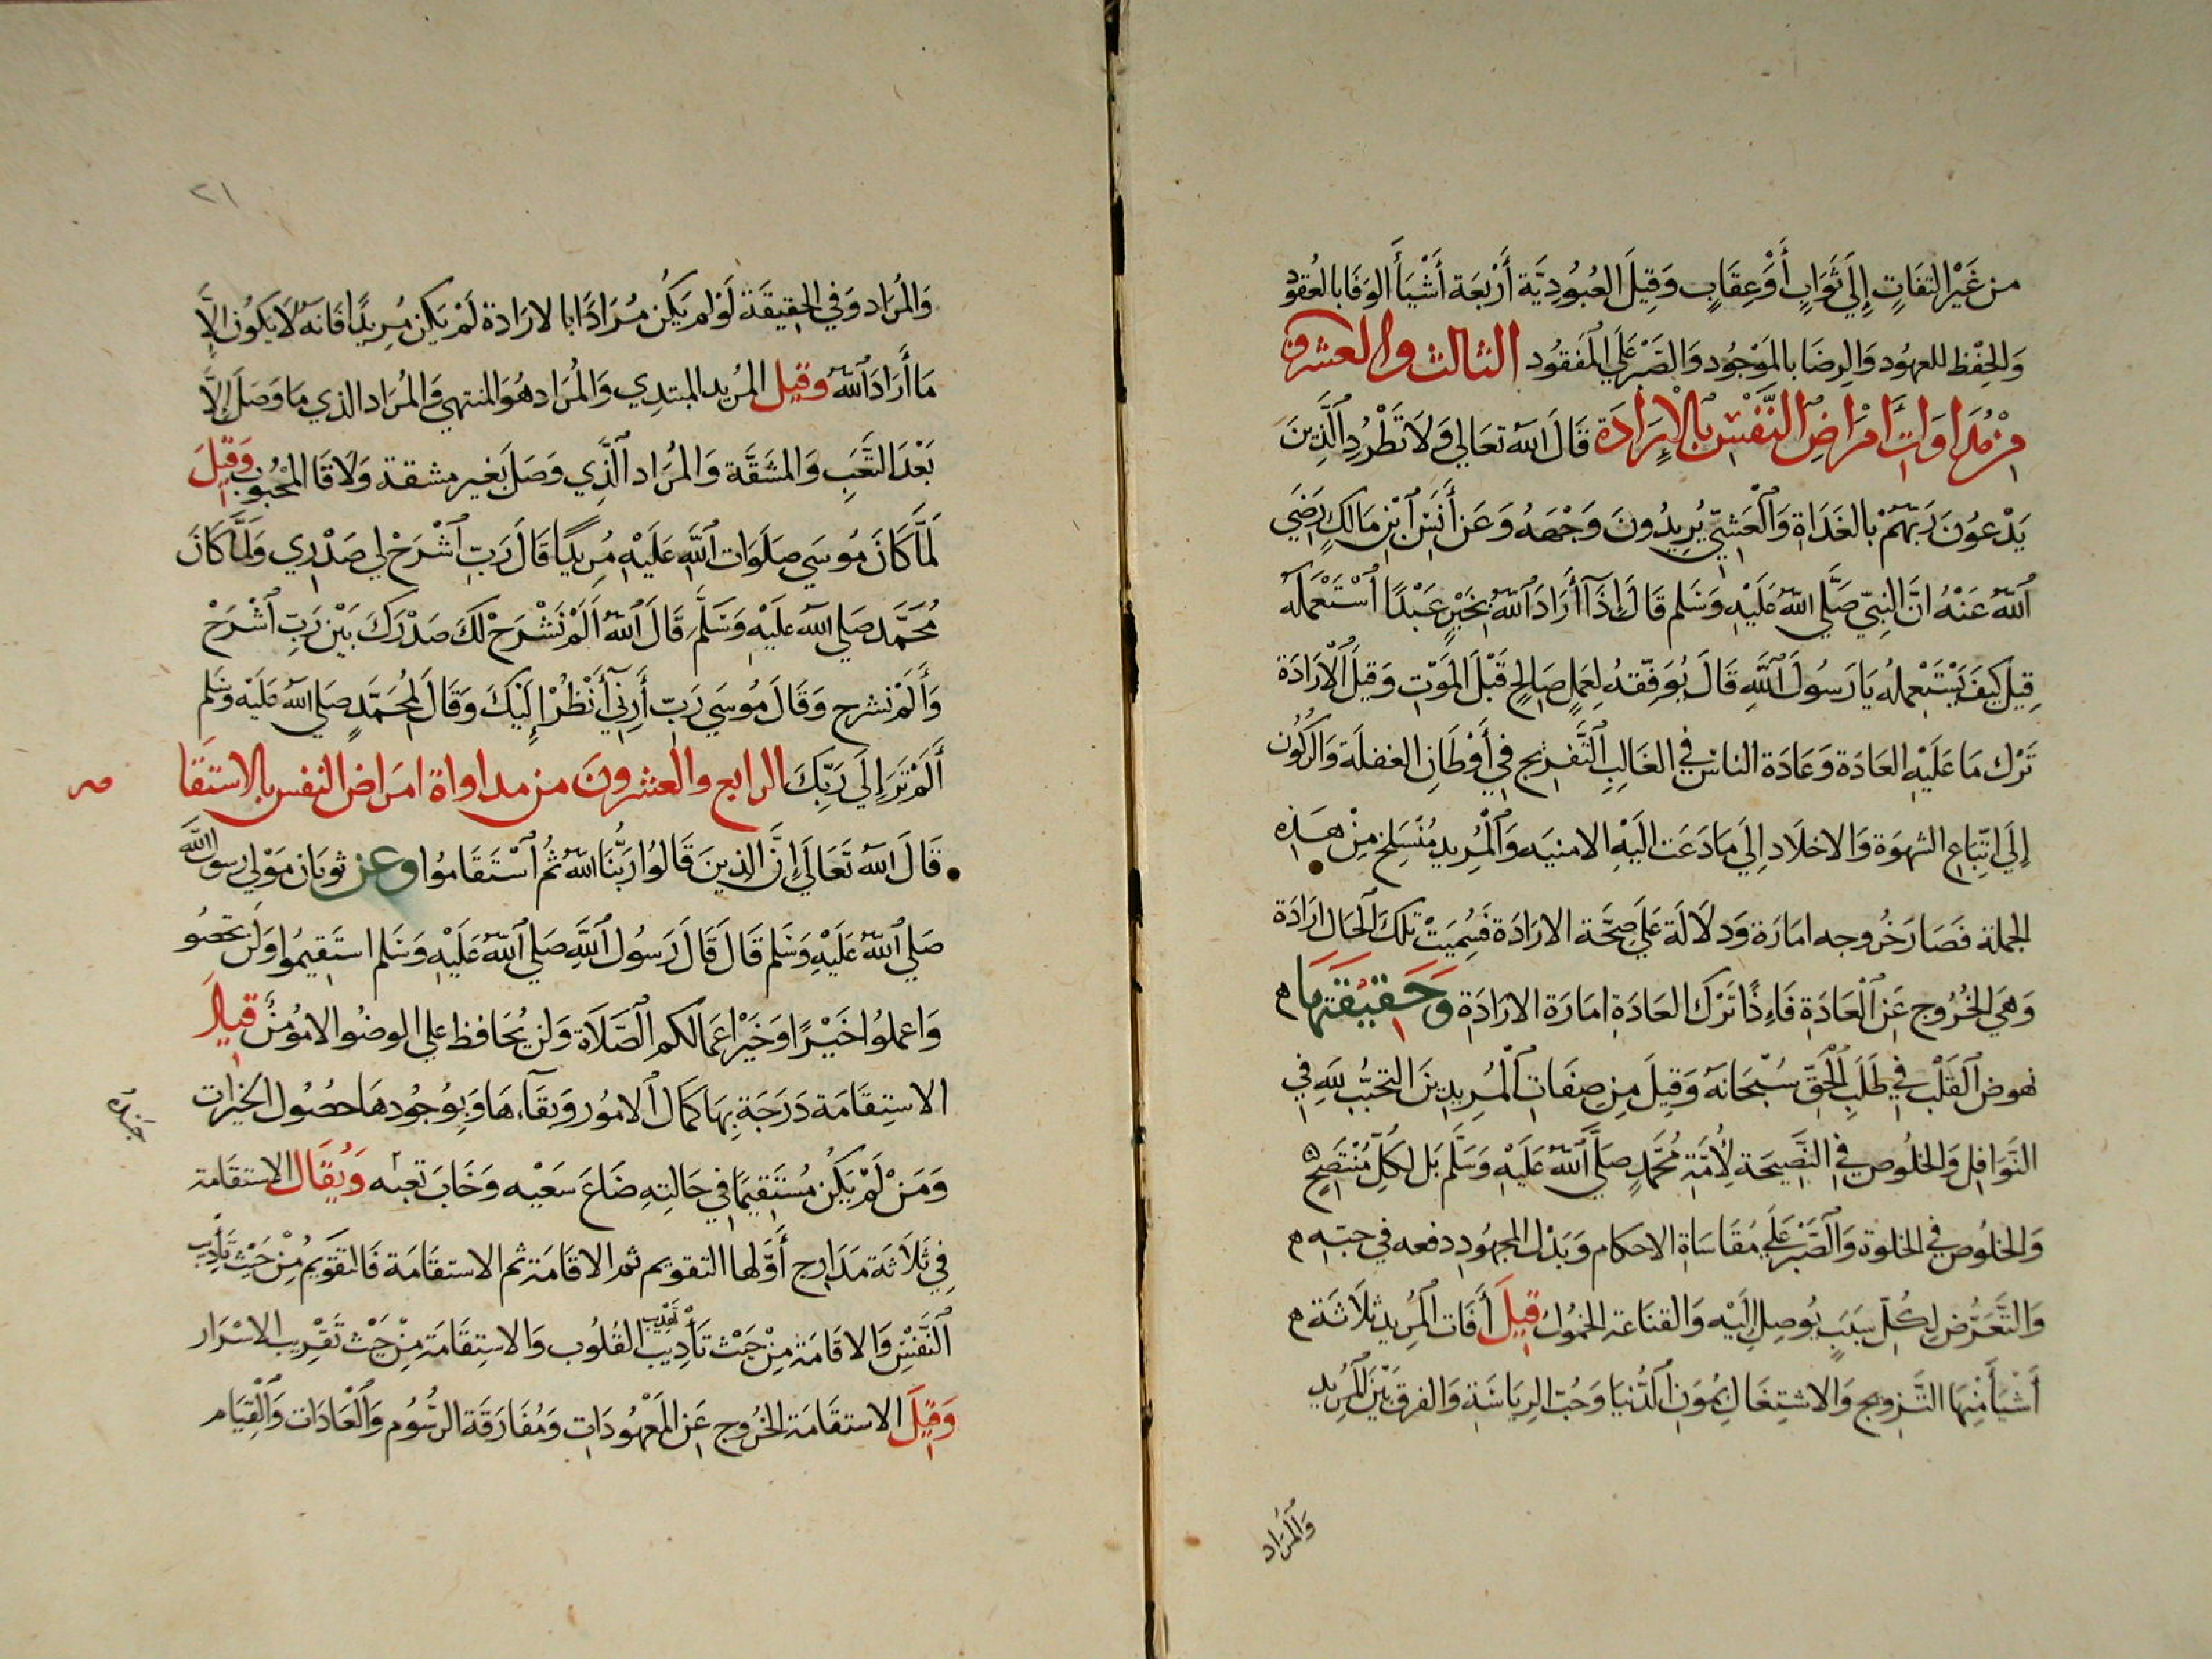 من غَيْرِ التفَاتٍ إِلَي ثَوَابٍ أَوْ عِقَابٍ وَقِيلَ العُبُودِيَّة أَرْبَعَة أَشْيَأ الوَفَا بالعُقود
وَالحِفْظ للعهُود وَالرِضَا بالمَوْجُود وَالصَبْر عَلَي المَفقُود الثالث والعشرون
مِنْ مُدَاوَاتِ أَمْرَاضِ النَّفْسِ بِالْإِرَادَة قَالَ الله تعَالي وَلَا تَطْرُدِ الَّذِينَ
يَدْعوُنَ رَبَّهمُ بالغَدَاةِ وَالْعَشِيِّ يُرِيدُونَ وَجْهَهُ وَعَن أَنَسِ ابْنِ مَالكٍ رَضَي
اللهُ عَنْهُ انَّ النبِيّ صَلَّي اللهُ عَلَيْهِ وَسَلم قَالَ إِذَا أَرَادَ اللهُ بِخَيْرٍ عَبْدًا اسْتَعْمَله
قِيلَ كيفَ يَسْتَعْمِلهُ يَا رَسُولَ اللهِ قَالَ يُوَفِّقهُ لِعَمَلٍ صَالحٍ قَبْلَ المَوْتِ وَقيلَ الْارَادَة
تَرْك مَا عَلَيْهِ العَادَة وَعَادَة الناس في الغَالِبِ التَّفْرِيج في أَوْطَانِ الغفلَة وَالرُكُون
إِلَي اتِّبَاعِ الشهوَة وَالاخلَاد إِلَي مَا دَعَت اليْهِ الامنيَه وَالْمُريد مُنْسَلِخ مِنْ هَذِهِ
الجملة فصَارَ خُروجه امَارَة وَدلَالَة عَلَي صحَّة الارَادَة فَسُمِيَتْ تلكَ الحَال ارَادَة
وَهيَ الخرُوج عَن الْعَادَة فَاِذًا تَرْك العَادَة امَارَة الارَادَة وَحَقِيقَتهَا م
نهوض القَلْبِ في طَلَبِ الْحَقّ سُبْحَانهُ وَقِيلَ مِن صِفَاتِ الْمُرِيدِينَ التحَبُّب للهِ في
النَّوَافِلِ وَالخلُوص في النَّصِيحَة لِأُمَّةِ مُحَمَّدٍ صَلَّي اللهُ عَلَيْهِ وَسَلَّمَ بَل لِكُلِّ مُنْتَصِحٍ ه
وَالخلُوص في الخلوة وَالصَّبْر عَلَي مُقَاسَاةِ الاحكام وَبَذْل المجهُود دفعه في حبّهِ م
وَالتَّعَرُّض لِكُلّ سَبَبٍ يُوصِل إِلَيْه وَالقنَاعَة الخمُول قِيلَ أَفَات المُرِيد ثلَاثَة م
أَشْيَأ مِنْهَا التَّزويج وَالاشتِغَال بِمُؤَنِ الدُّنيَا وَحُبّ الرِيَاسَة وَالفرق بَيْنَ الْمُرِيد
وَالمُرَاد
٢١
وَالمُرَاد وَفي الحقيقَة لَوْ لم يَكُن مُرَادًا بالارَادة لَمْ يَكن مُرِيدًا فَانهُ لَا يَكُون إِلَّا
مَا أَرَادَ اللهُ وقيل المرُيد المبتدِي وَالمُرَاد هُوَ المنتهي وَالمُرَاد الذي مَا وَصَلَ إِلَّا
بَعْدَ التَّعَبِ وَالمشَقَّة وَالمُرَاد الَّذِي وَصَلَ بَغير مشقة وَلَاقَا المَحْبُوب وَقِيلَ
لَمَّا كَانَ مُوسَي صَلَوَات اللهِ عَلَيْهِ مُرِيدًا قَالَ رَبِّ اشْرَحْ لي صَدْرِي وَلَمَّا كَانَ
مُحَمَّد صَلي الله عَليْهِ وَسَلَّم قَالَ اللهُ أَلَمْ نَشْرَحْ لَكَ صَدْرَكَ بَيْن رَبِّ اشْرَحْ
وَأَلَمْ نشرح وَقَالَ مُوسَي رَبِّ أَرِنِي أَنْظُرْ إِلَيْكَ وَقَالَ لمُحَمَّدٍ صَلي الله عَلَيْه وَسَلم
أَلَمْ تَرَ إِلَي رَبِّكَ الرابع والعشرونَ من مداواة امَراض النفس بالاستقَا مه
قَالَ الله تَعَالَي إِنَّ الذِينَ قَالُوا رَبُّنَا اللهُ ثُمَّ اسْتَقَامُوا وعن ثوبَان مَوْلَي رسول الله
صَلي اللهُ عَلَيْهِ وَسَلم قَالَ قَالَ رَسُول اللهِ صَلي اللهُ عَلَيْهِ وَسَلم استَقِيمُوا وَلَن تحصُو
وَاعملُوا خَيْرًا وَخَيْر اعمَالكم الصَّلَاة وَلن يُحَافظ علي الوضُو الا مُؤمِنٌ قِيلَ
الاستِقَامَة دَرَجَة بِهَا كمَال الامُور وَبَقَآءهَا وَبِوُجُودهَا حصُول الخيرَات
وَمَنْ لَمْ يَكُن مُسْتَقِيمًا في حَالَتِهِ ضَاعَ سَعْيه وَخَابَ تعبه وَيُقَال الاستقَامَة
في ثَلَاثَة مَدَارِج أَوَّلها التقويم ثم الاقَامَة ثم الاستقَامَة فَالتقويمُ مِنْ حَيْث تَأدِيب
النَّفْس وَالاقَامَة مِنْ حَيْث تَأْدِيب تَهْذِيب القُلُوب وَالاستِقَامَة مِنْ حَيْث تَقْرِيب الاسْرَار
وَقِيلَ الاستقَامَة الخرُوج عَن المَعْهُودَاتِ وَمُفَارَقَة الرُّسُوم وَالْعَادَات وَالْقِيَام